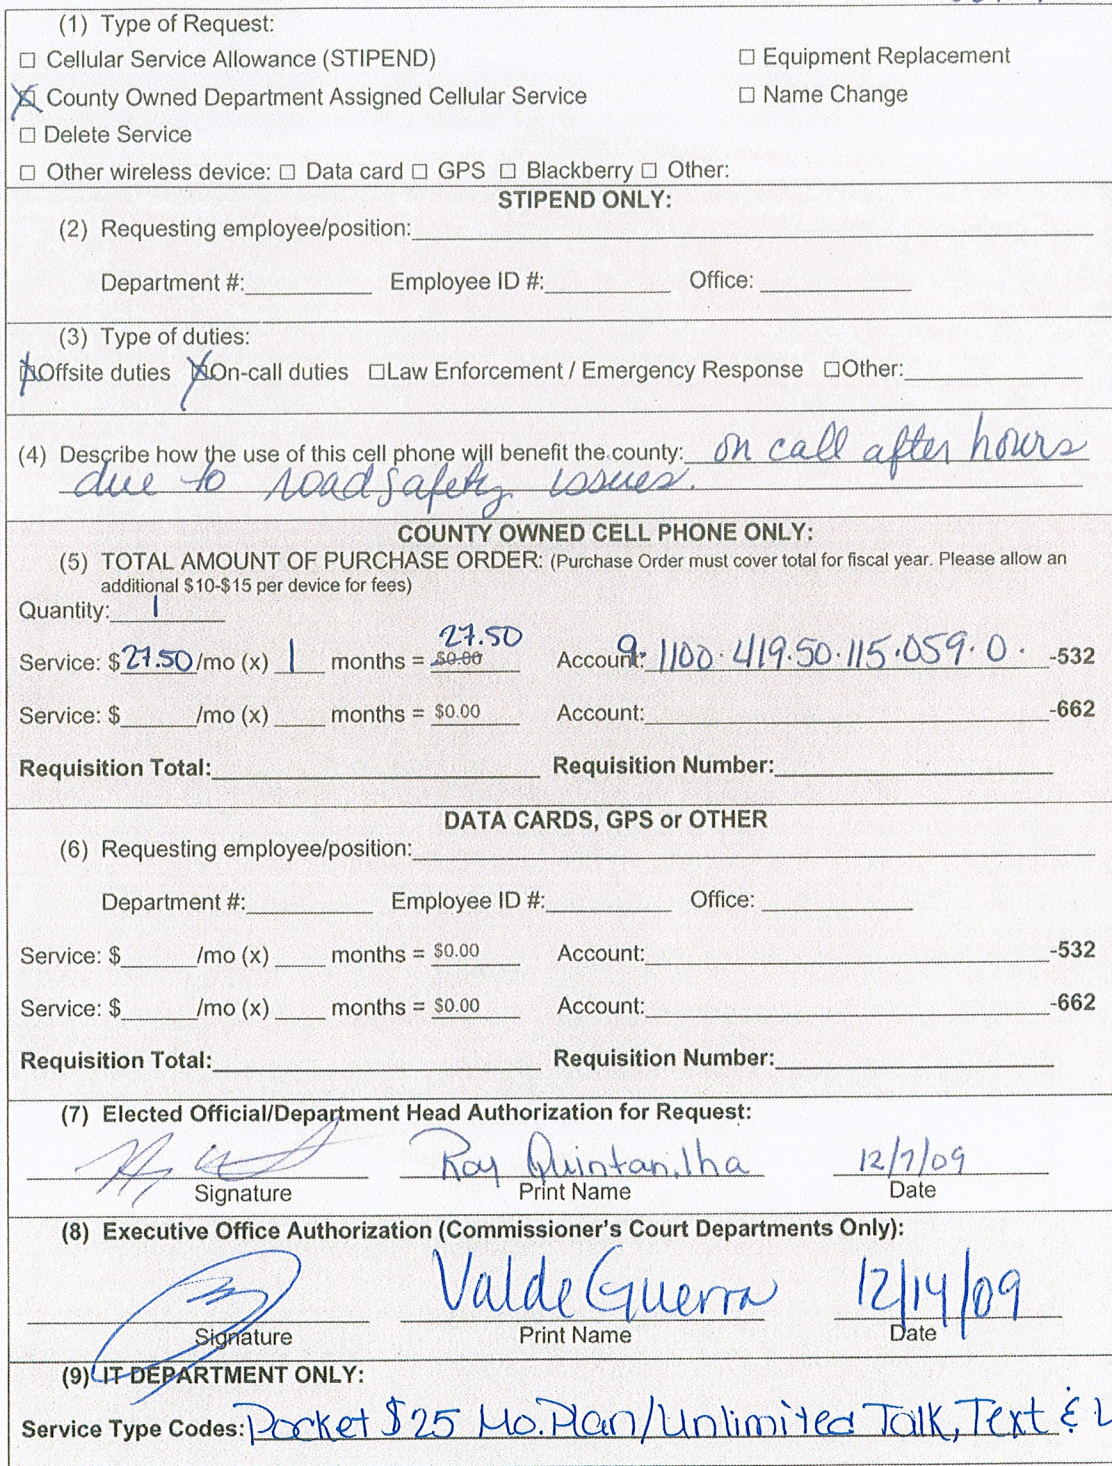 (1) Type of Request:
☐ Cellular Service Allowance (STIPEND) ☐ Equipment Replacement
☒ County Owned Department Assigned Cellular Service ☐ Name Change
☐ Delete Service
☐ Other wireless device: ☐ Data card ☐ GPS ☐ Blackberry ☐ Other:
STIPEND ONLY:
(2) Requesting employee/position:
Department #: Employee ID #: Office:
(3) Type of duties:
☒Offsite duties ☒On-call duties ☐Law Enforcement / Emergency Response ☐Other:
(4) Describe how the use of this cell phone will benefit the county: on call after hours
due to road safety issues.
COUNTY OWNED CELL PHONE ONLY:
(5) TOTAL AMOUNT OF PURCHASE ORDER: (Purchase Order must cover total for fiscal year. Please allow an
additional $10-$15 per device for fees)
Quantity: 1
27.50
Service: $27.50/mo (x) 1 months = $0.00 Account: 9.1100.419.50.115.059.0. -532
Service: $ /mo (x) months = $0.00 Account: -662
Requisition Total: Requisition Number:
DATA CARDS, GPS or OTHER
(6) Requesting employee/position:
Department #: Employee ID #: Office:
Service: $ /mo (x) months = $0.00 Account: -532
Service: $ /mo (x) months = $0.00 Account: -662
Requisition Total: Requisition Number:
(7) Elected Official/Department Head Authorization for Request:
Roy Quintanilha 12/7/09
Signature Print Name Date
(8) Executive Office Authorization (Commissioner's Court Departments Only):
Valde Guerra 12/14/09
Signature Print Name Date
(9) IT DEPARTMENT ONLY:
Service Type Codes: Pocket $25 Mo. Plan/Unlimited Talk, Text &